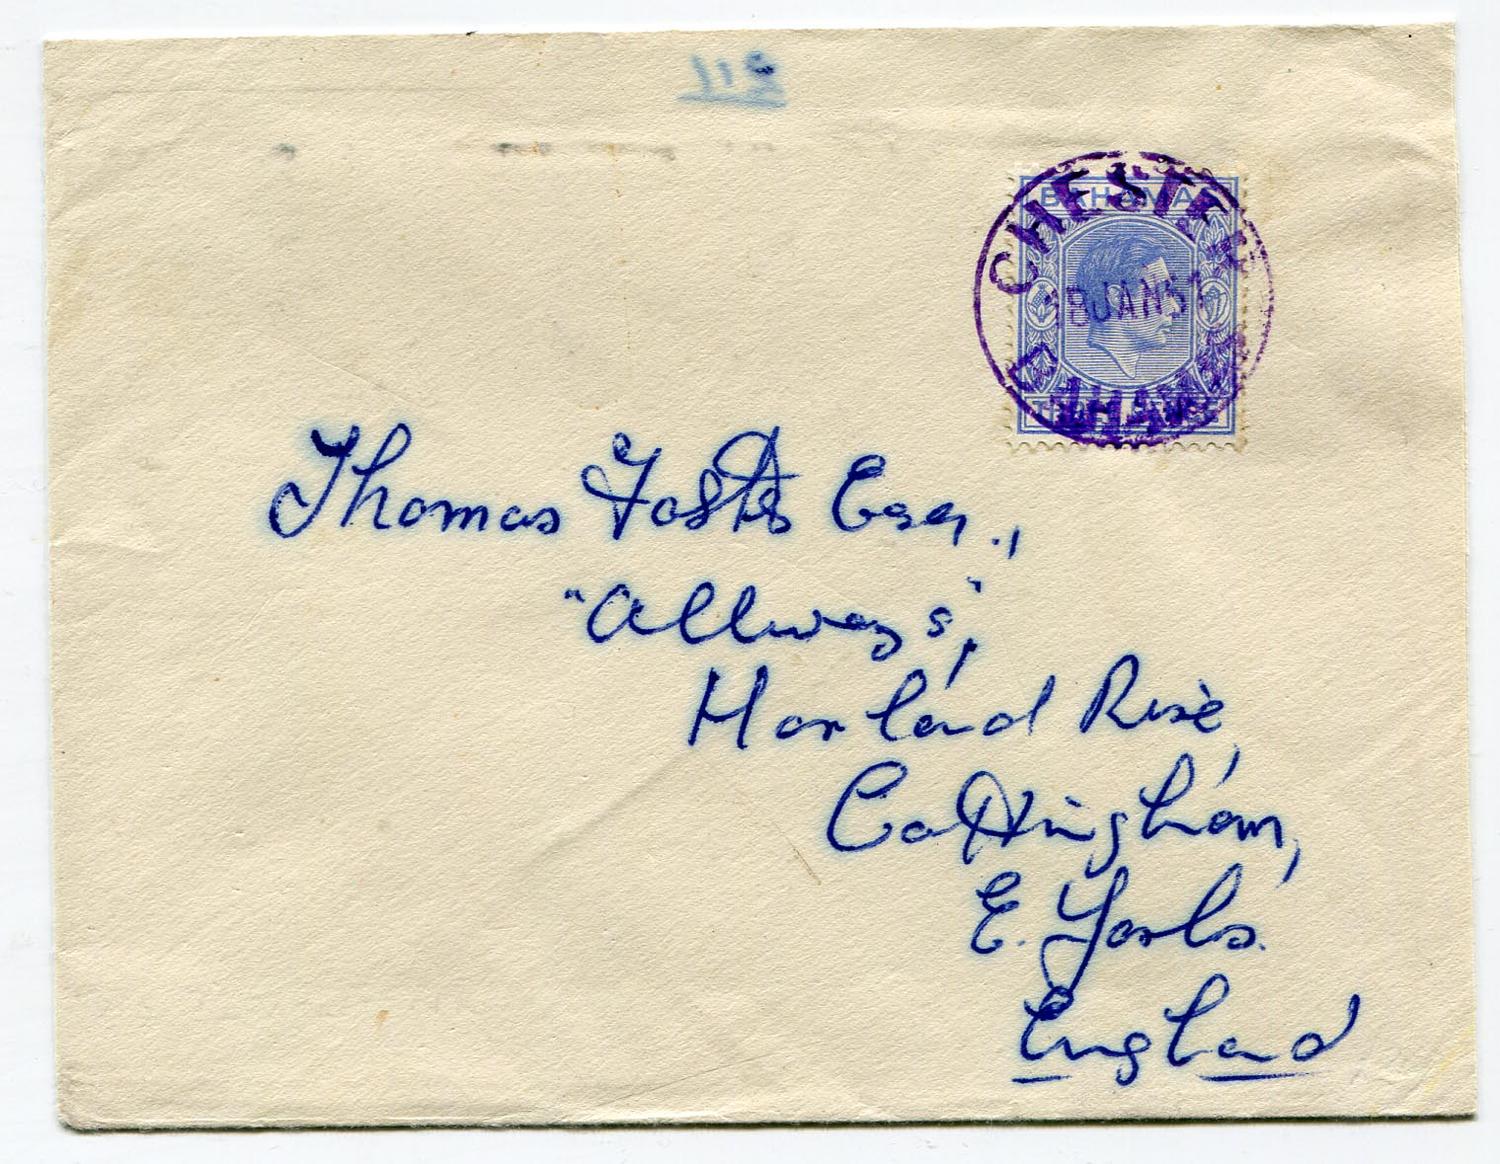 BAHAMAS
CHESTER
18 JAN 51
BAHAMAS
Thomas Foster Esq.,
"Allways",
Harland Rise,
Cottingham,
E. Yorks.
England